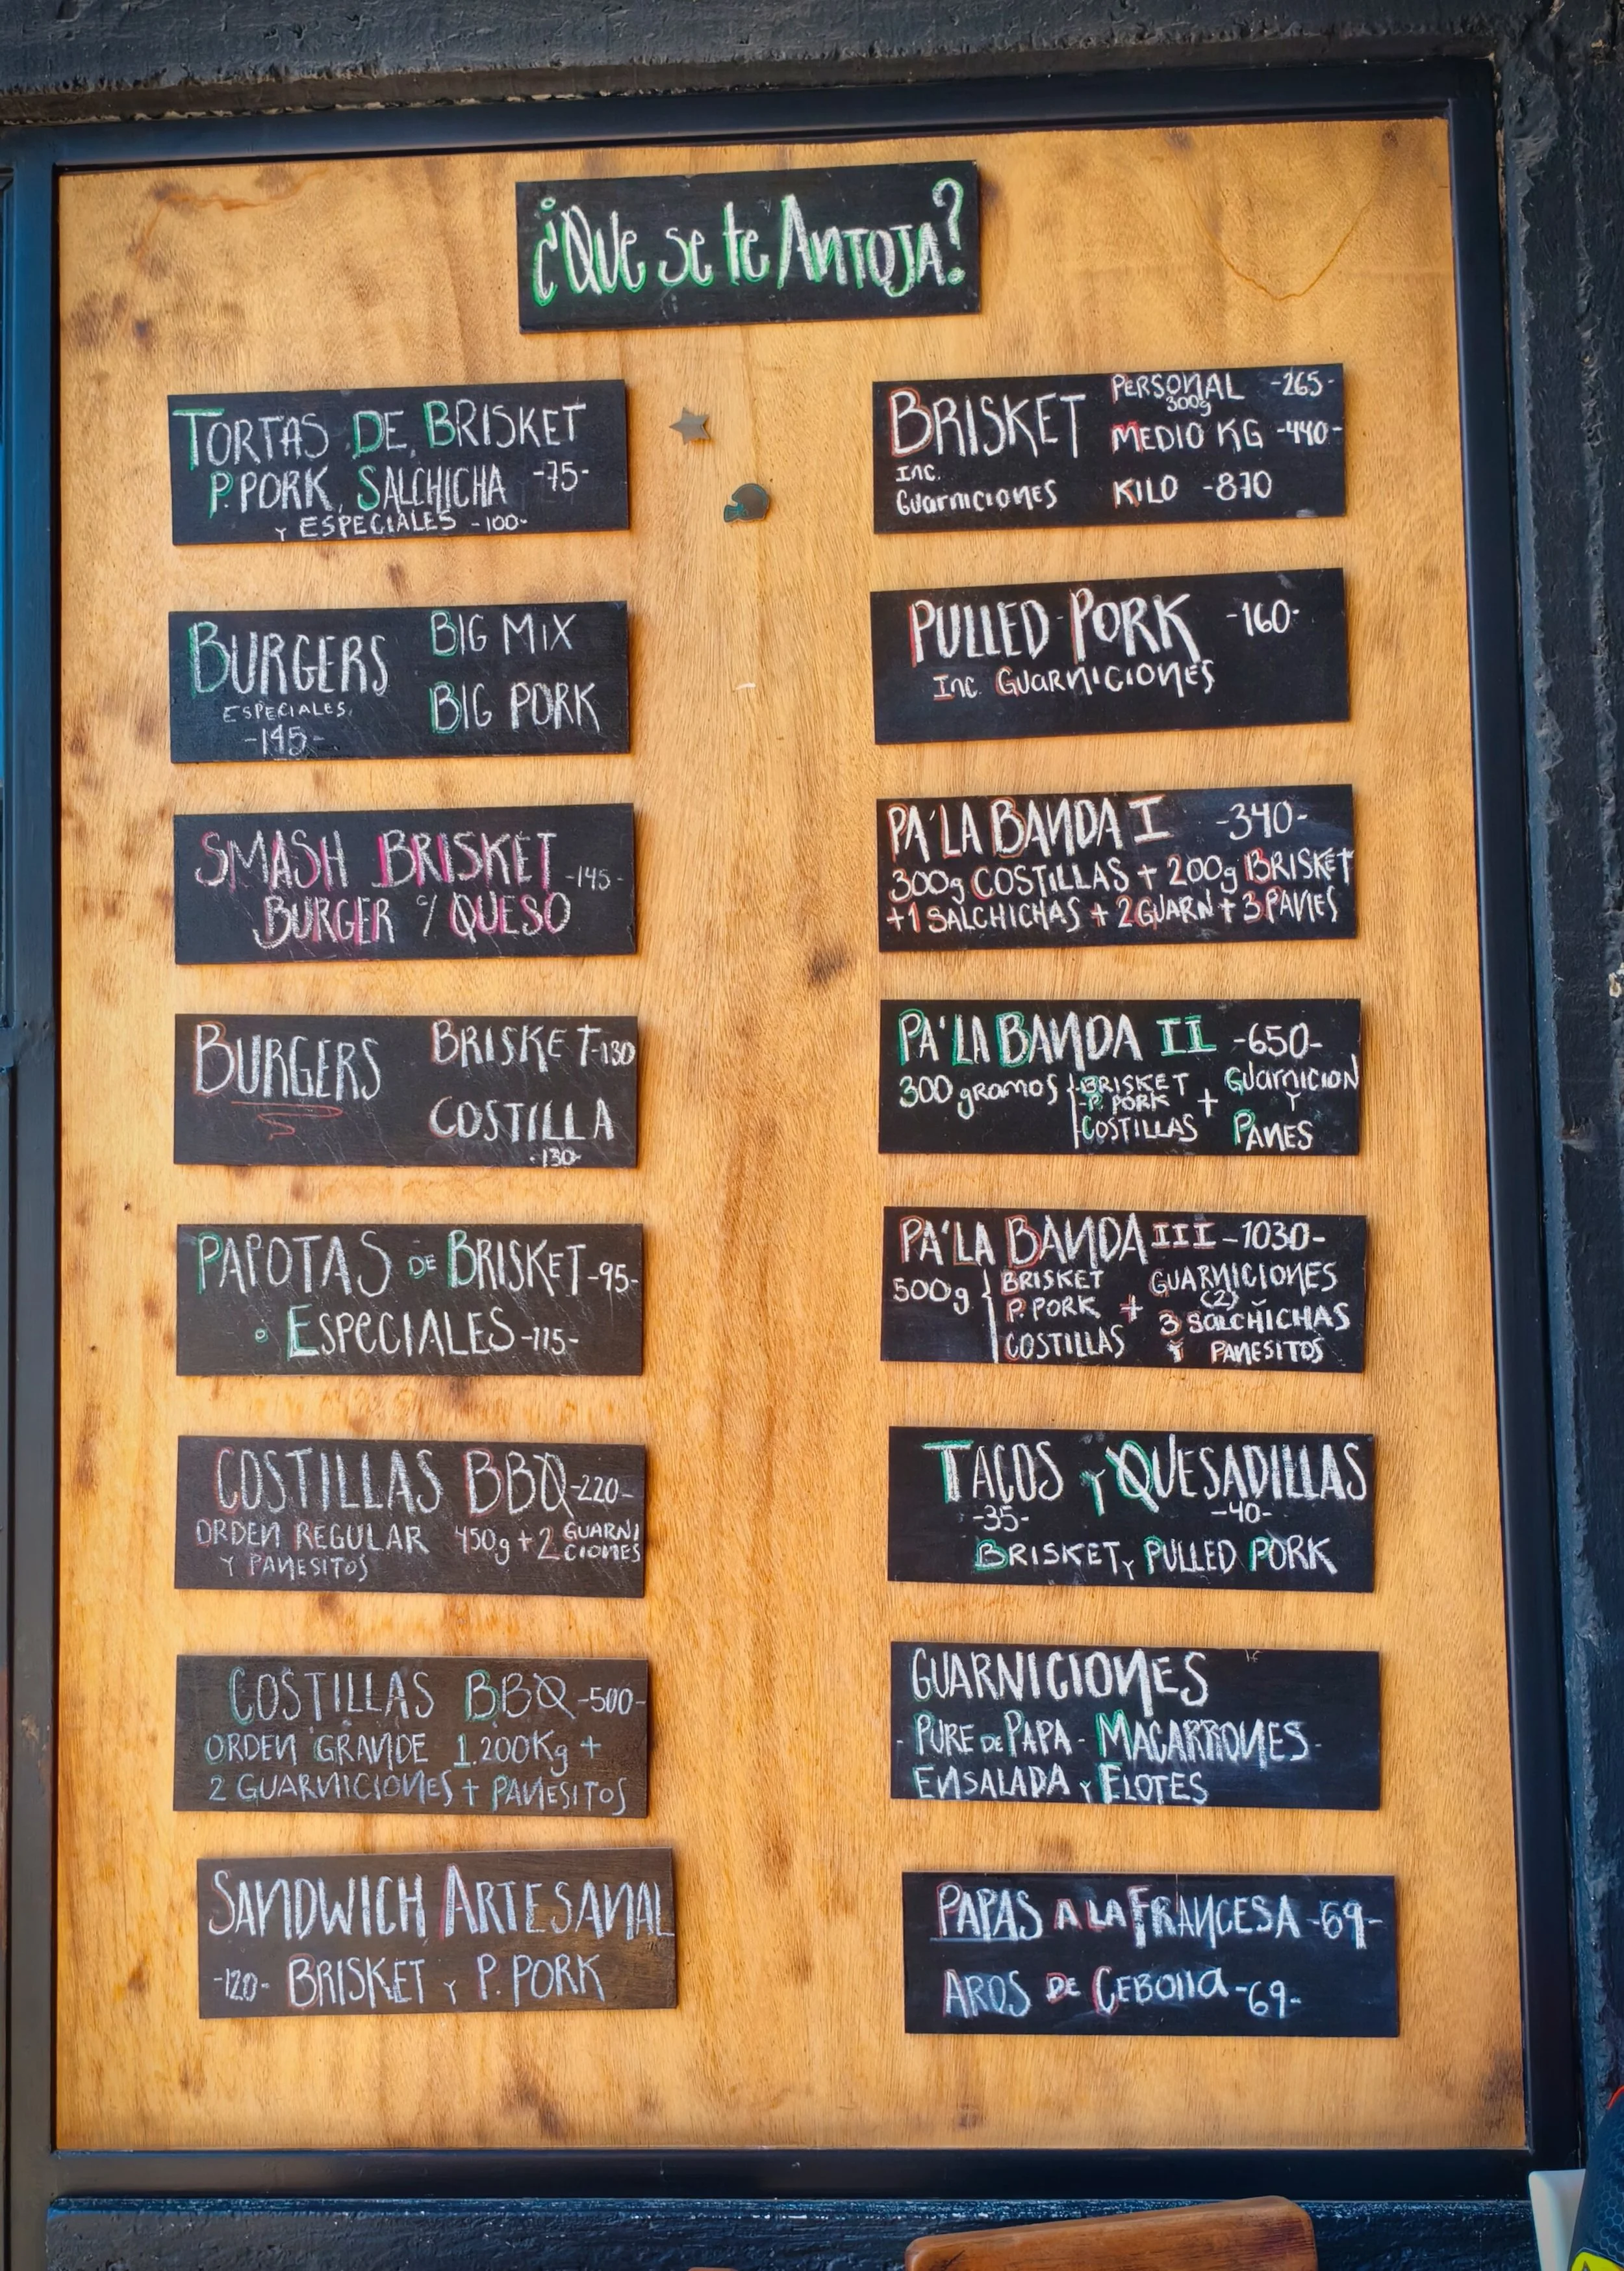 ¿Que se te Antoja?
TORTAS DE BRISKET
P. PORK, SALCHICHA -75-
Y ESPECIALES -100-
BURGERS
ESPECIALES,
-145-
BIG MIX
BIG PORK
SMASH BRISKET -145-
BURGER c/ QUESO
BURGERS
BRISKET-130
COSTILLA
-130-
PAPOTAS DE BRISKET-95-
o ESPECIALES-115-
COSTILLAS BBQ-220-
ORDEN REGULAR 450g + 2 GUARNI
CIONES
Y PANESITOS
COSTILLAS BBQ-500-
ORDEN GRANDE 1,200Kg +
2 GUARNICIONES + PANESITOS
SANDWICH ARTESANAL
-120- BRISKET Y P. PORK
BRISKET
INC.
Guarniciones
PERSONAL -265-
300g
MEDIO KG -440-
KILO -870
PULLED-PORK -160-
INC. GUARNICIONES
PA'LA BANDA I -340-
300g COSTILLAS + 200g BRISKET
+1 SALCHICHAS + 2 GUARN + 3 PANES
PA'LA BANDA II -650-
300 gramos
-BRISKET
-P. PORK
COSTILLAS
+
GUARNICION
Y
PANES
PA'LA BANDA III -1030-
500g
BRISKET
P. PORK
COSTILLAS
+
GUARNICIONES
(2)
3 SALCHICHAS
Y PANESITOS
TACOS Y QUESADILLAS
-35- -40-
BRISKET Y PULLED PORK
GUARNICIONES
- PURE DE PAPA - MACARRONES-
ENSALADA Y ELOTES
PAPAS A LA FRANCESA -69-
AROS DE CEBOLLA -69-